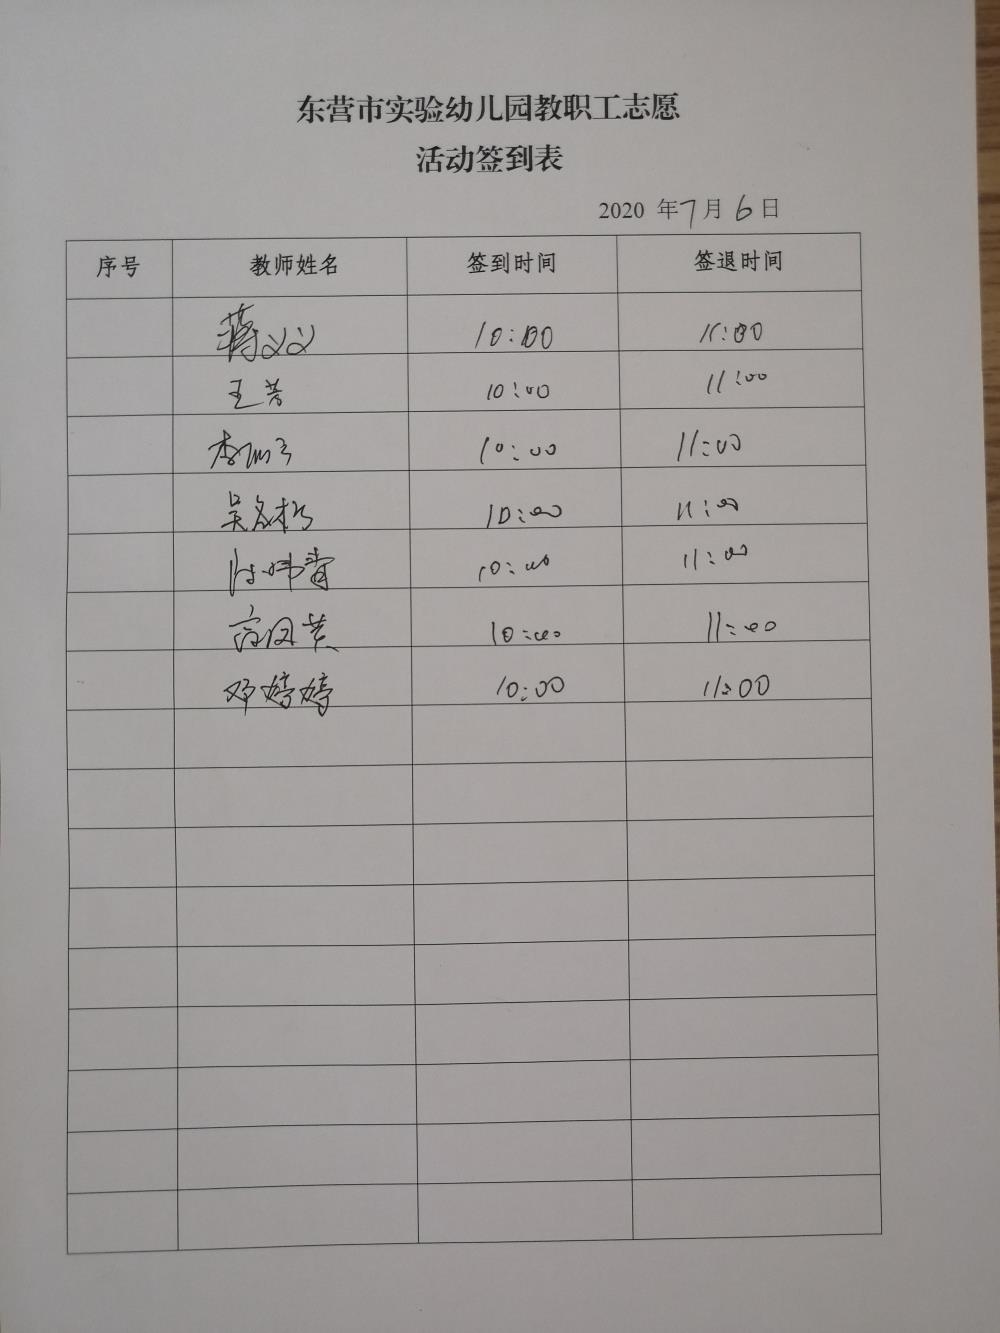 东营市实验幼儿园教职工志愿
活动签到表
2020 年7月6日
序号 教师姓名 签到时间 签退时间
蒋 10:00 11:00
王 10:00 11:00
李 10:00 11:00
吴 10:00 11:00
10:00 11:00
10:00 11:00
邓婷婷 10:00 11:00